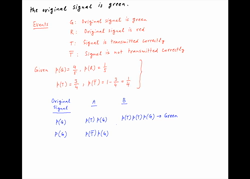 the original signal is green.
Events G: Original signal is green
R: Original signal is red
T: Signal is transmitted correctly
T̅: Signal is not transmitted correctly
Given p(G) = 4/5, p(R) = 1/5
p(T) = 3/4, p(T̅) = 1 - 3/4 = 1/4
Original Signal A B
p(G) p(T) p(G) p(T) p(T) p(G) → Green
p(G) p(T̅) p(G)